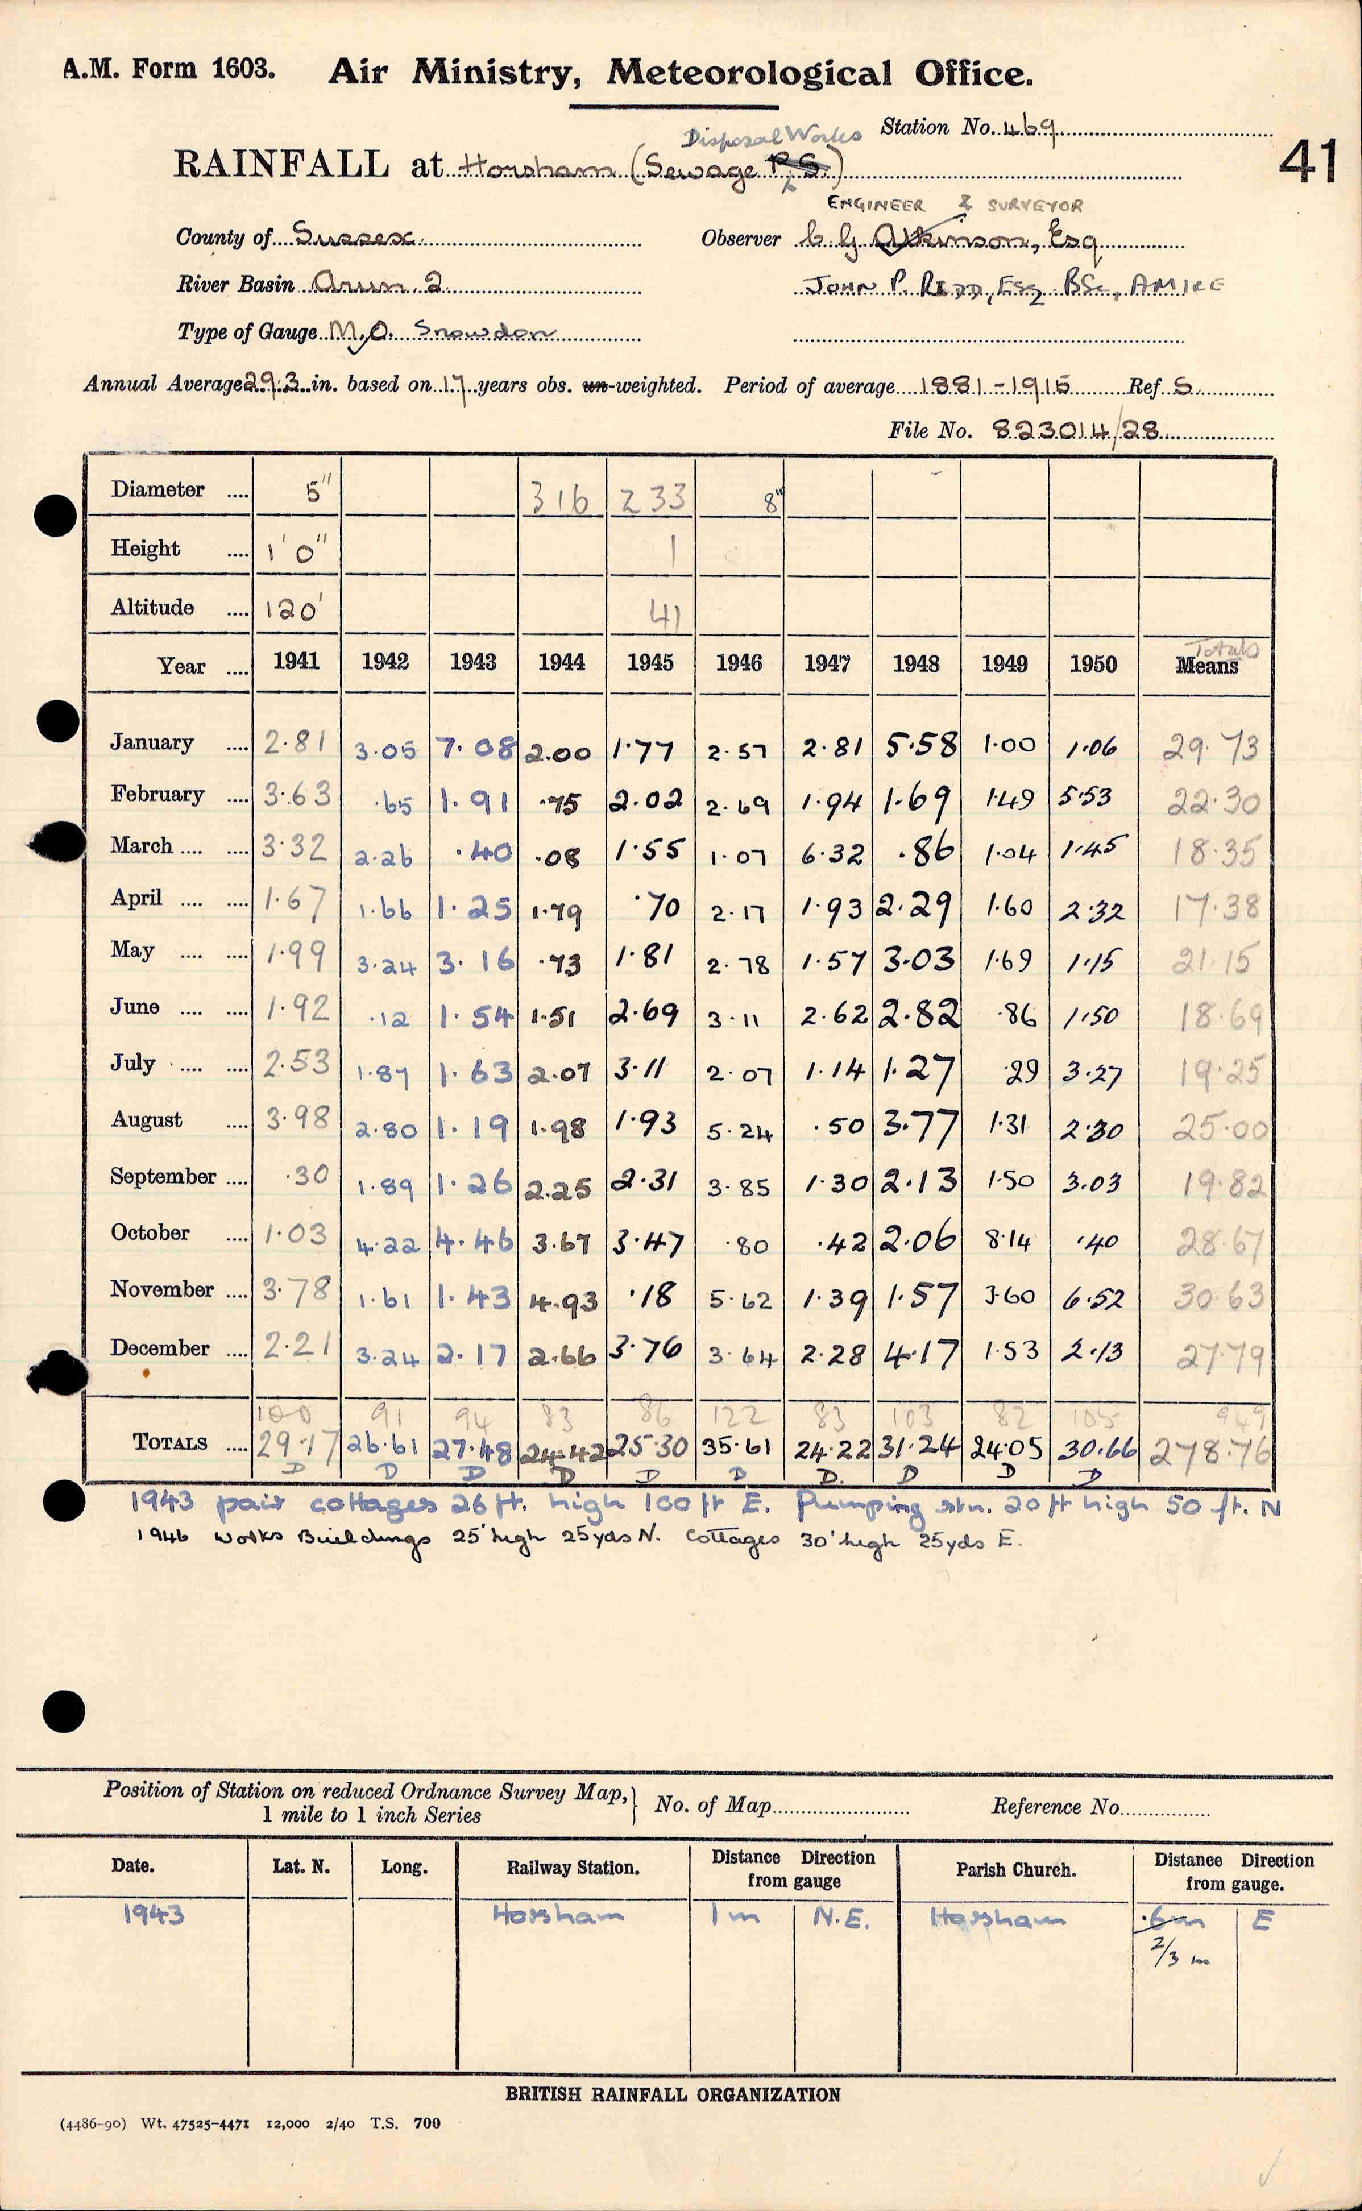 A.M. Form 1603. Air Ministry, Meteorological Office.
Station No. 469
41
Disposal Works
RAINFALL at Horsham (Sewage P.S.)
ENGINEER & SURVEYOR
County of Sussex. Observer C G Atkinson, Esq
River Basin Arun. 2 JOHN P. RIDD, ESQ BSc, AMICE
Type of Gauge M.O. Snowdon
Annual Average 29.3 in. based on 17 years obs. un-weighted. Period of average 1881-1915 Ref S.
File No. 823014/28
Diameter .... 5" 316 233 8"
Height .... 1' 0" 1
Altitude .... 120' 41
Totals
Year .... 1941 1942 1943 1944 1945 1946 1947 1948 1949 1950 Means
January .... 2.81 3.05 7.08 2.00 1.77 2.57 2.81 5.58 1.00 1.06 29.73
February .... 3.63 .65 1.91 .75 2.02 2.69 1.94 1.69 1.49 5.53 22.30
March .... .... 3.32 2.26 .40 .08 1.55 1.07 6.32 .86 1.04 1.45 18.35
April .... .... 1.67 1.66 1.25 1.79 .70 2.17 1.93 2.29 1.60 2.32 17.38
May .... .... 1.99 3.24 3.16 .73 1.81 2.78 1.57 3.03 1.69 1.15 21.15
June .... .... 1.92 .12 1.54 1.51 2.69 3.11 2.62 2.82 .86 1.50 18.69
July .... .... 2.53 1.87 1.63 2.07 3.11 2.07 1.14 1.27 .29 3.27 19.25
August .... 3.98 2.80 1.19 1.98 1.93 5.24 .50 3.77 1.31 2.30 25.00
September .... .30 1.89 1.26 2.25 2.31 3.85 1.30 2.13 1.50 3.03 19.82
October .... 1.03 4.22 4.46 3.67 3.47 .80 .42 2.06 8.14 .40 28.67
November .... 3.78 1.61 1.43 4.93 .18 5.62 1.39 1.57 3.60 6.52 30.63
December .... 2.21 3.24 2.17 2.66 3.76 3.64 2.28 4.17 1.53 2.13 27.79
100 91 94 83 86 122 83 103 82 105 949
TOTALS .... 29.17 26.61 27.48 24.42 25.30 35.61 24.22 31.24 24.05 30.66 278.76
D D D D D D D. D D D
1943 pair cottages 26 ft. high 100 ft E. Pumping stn. 20 ft high 50 ft. N
1946 Works Buildings 25' high 25yds N. Cottages 30' high 25yds E.
Position of Station on reduced Ordnance Survey Map,
1 mile to 1 inch Series
No. of Map Reference No.
Date. Lat. N. Long. Railway Station. Distance Direction from gauge Parish Church. Distance Direction from gauge.
1943 Horsham 1 m N.E. Horsham .6m E
2/3 m
BRITISH RAINFALL ORGANIZATION
(4486-90) Wt. 47525-4471 12,000 2/40 T.S. 700